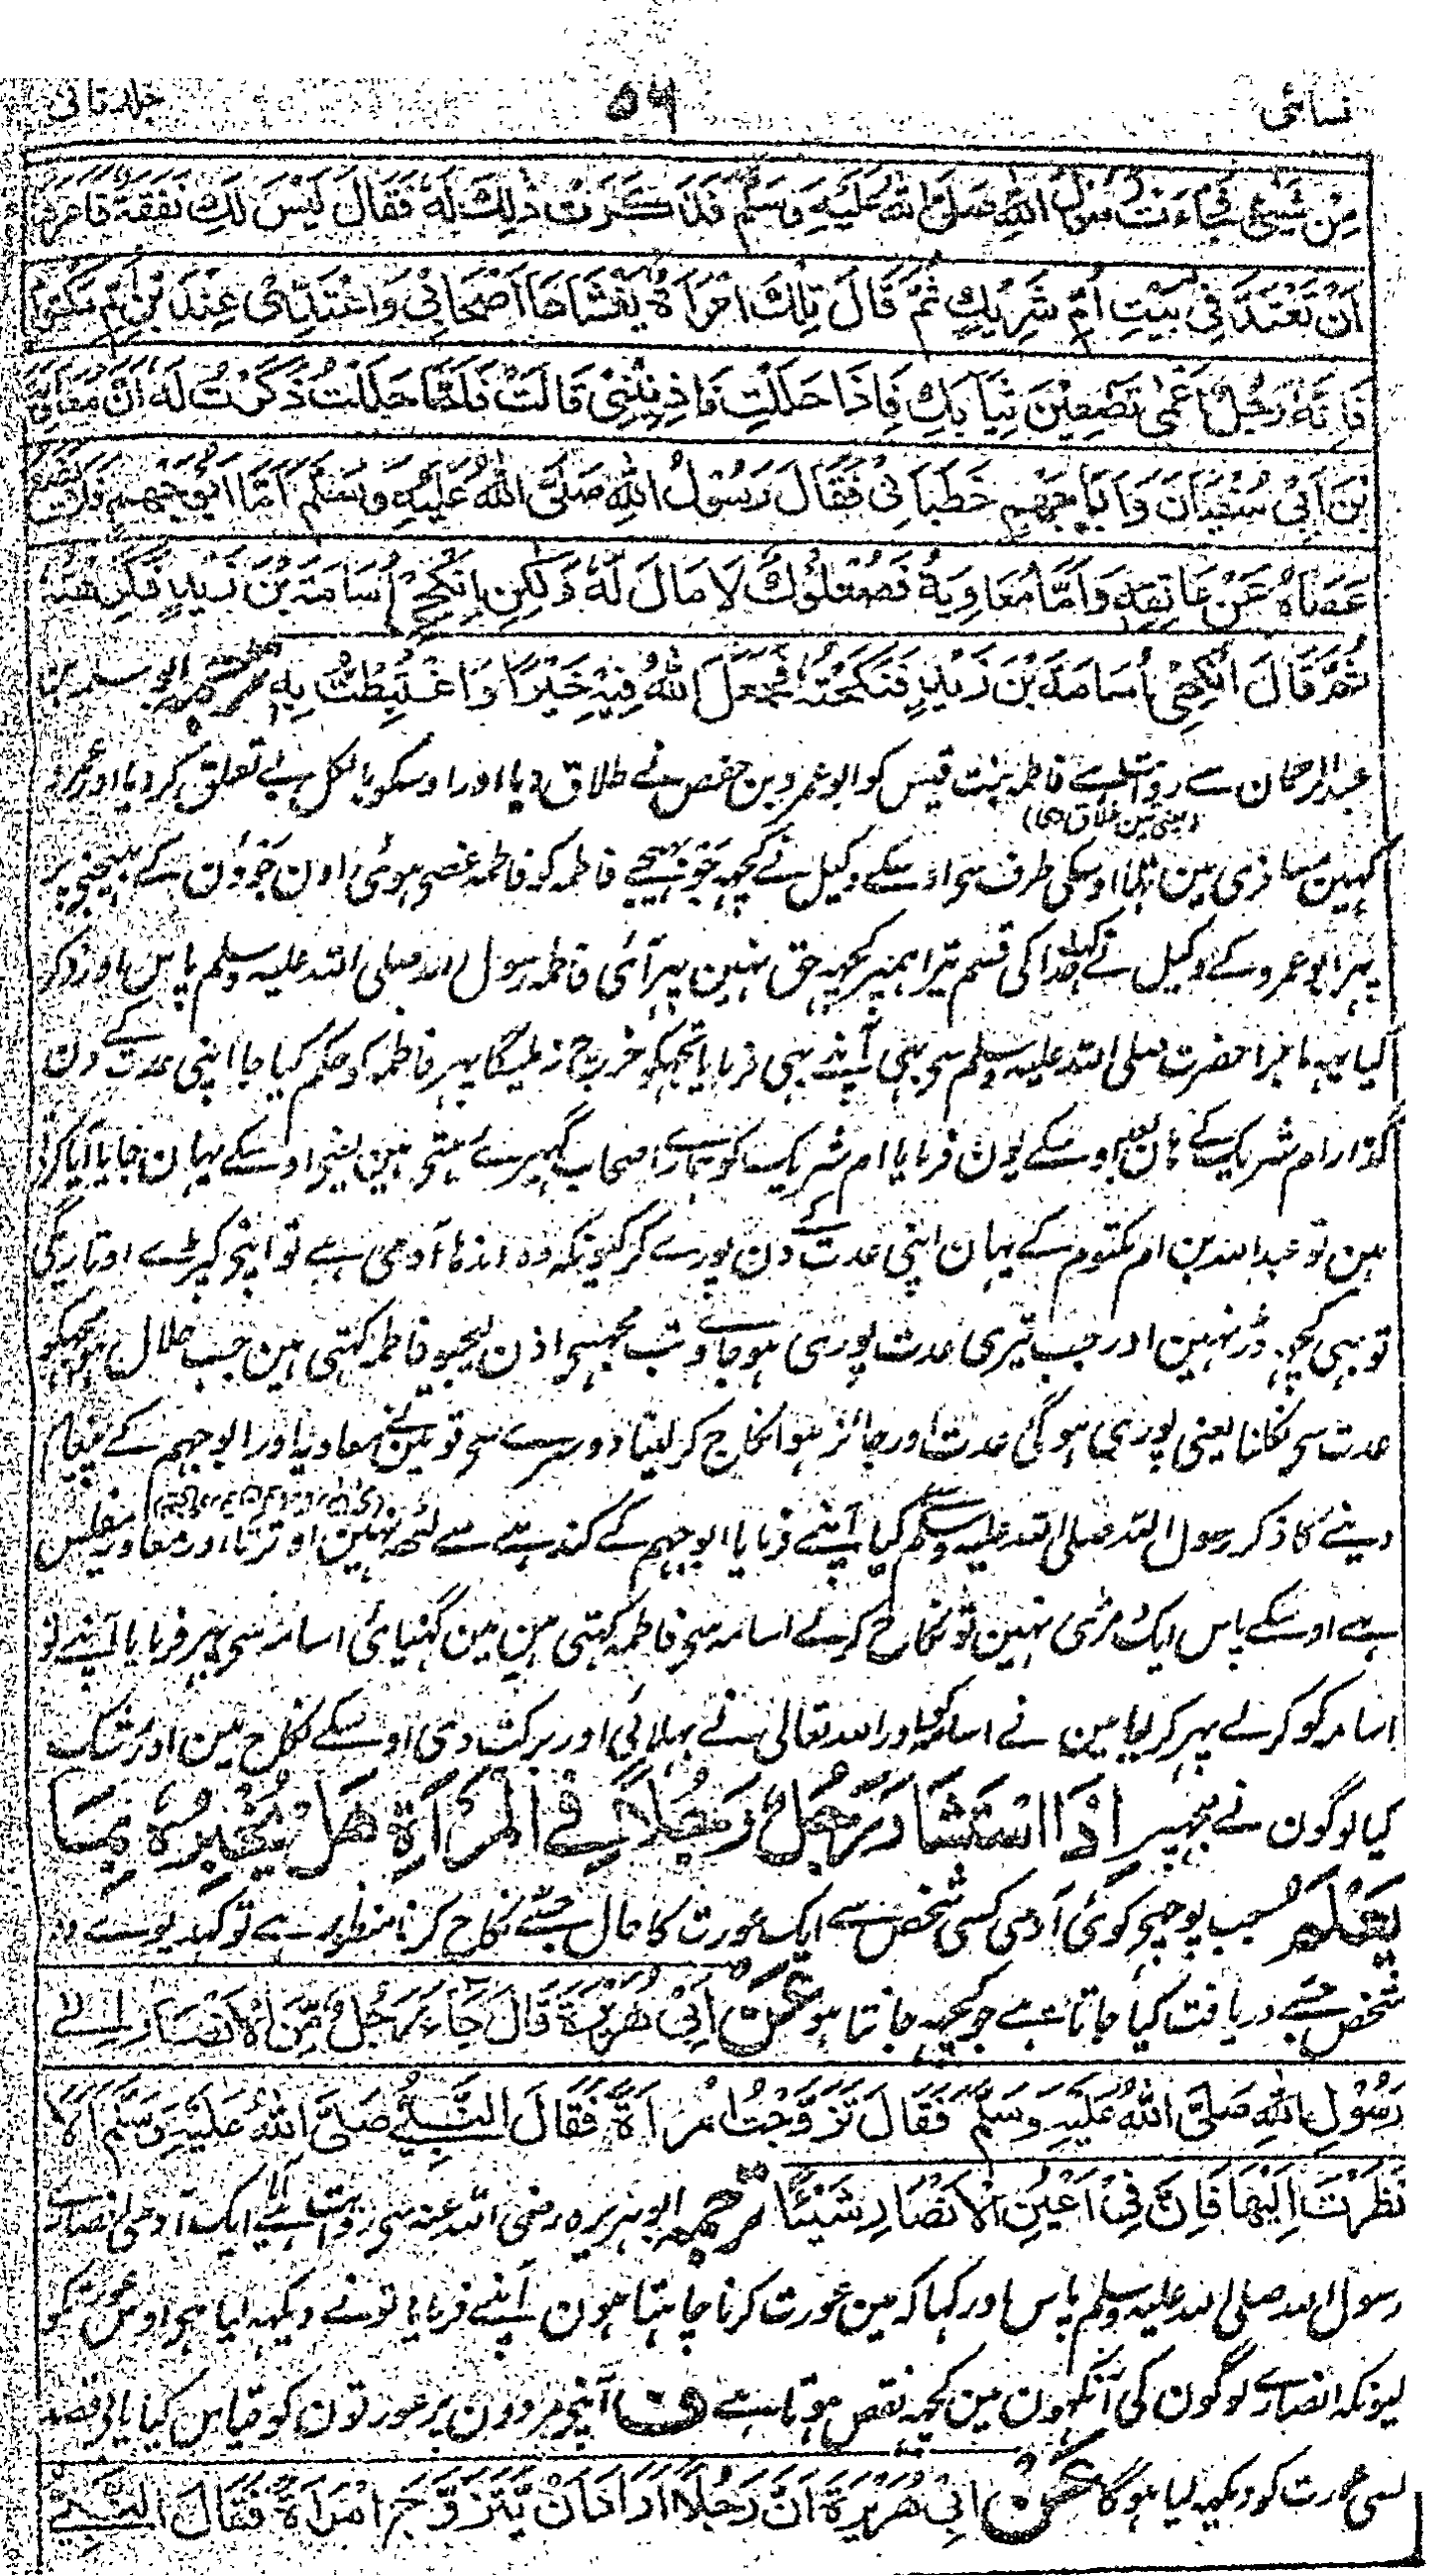 نسائی ۵۶ جلد ثانی
مِنْ شَيْءٍ فَجَاءَتْ رَسُوْلَ اللهِ صَلَّى اللهُ عَلَيْهِ وَسَلَّمَ فَذَكَرَتْ ذٰلِكَ لَهٗ فَقَالَ لَيْسَ لَكِ نَفَقَةٌ فَاَمَرَهَا
اَنْ تَعْتَدَّ فِيْ بَيْتِ اُمِّ شَرِيْكٍ ثُمَّ قَالَ تِلْكَ امْرَاَةٌ يَغْشَاهَا اَصْحَابِيْ وَاعْتَدِّيْ عِنْدَ ابْنِ اُمِّ مَكْتُوْمٍ
فَاِنَّهٗ رَجُلٌ اَعْمٰى تَضَعِيْنَ ثِيَابَكِ فَاِذَا حَلَلْتِ فَاٰذِنِيْنِيْ قَالَتْ فَلَمَّا حَلَلْتُ ذَكَرْتُ لَهٗ اَنَّ مُعَاوِيَةَ
بْنَ اَبِيْ سُفْيَانَ وَاَبَا جَهْمٍ خَطَبَانِيْ فَقَالَ رَسُوْلُ اللهِ صَلَّى اللهُ عَلَيْهِ وَسَلَّمَ اَمَّا اَبُوْ جَهْمٍ فَلَا يَضَعُ
عَصَاهُ عَنْ عَاتِقِهٖ وَاَمَّا مُعَاوِيَةُ فَصُعْلُوْكٌ لَا مَالَ لَهٗ وَلٰكِنِ انْكِحِيْ اُسَامَةَ بْنَ زَيْدٍ فَكَرِهْتُهٗ
ثُمَّ قَالَ انْكِحِيْ اُسَامَةَ بْنَ زَيْدٍ فَنَكَحْتُهٗ فَجَعَلَ اللهُ فِيْهِ خَيْرًا وَاغْتَبَطْتُ بِهٖ ترجمہ ابو سلمہ بن
عبدالرحمان سے روایت ہے فاطمہ بنت قیس کو ابو عمرو بن حفص نے طلاق دیا اور اوسکو بالکل بے تعلق کر دیا اور
(یعنی تین طلاق دی)
کہین مسافری مین تہا اوسکی طرف سی اوسکے وکیل نے کچہہ جَو بہیجے فاطمہ کو فاطمہ غصی ہوئی اون جَوؤن کے بہیجنی پر
پہر ابو عمرو کے وکیل نے کہا خدا کی قسم تیرا ہمپر کچہہ حق نہین پہر آئی فاطمہ رسول اللہ صلی اللہ علیہ وسلم پاس اور ذکر
کیا یہہ ماجرا حضرت صلی اللہ علیہ وسلم سی بہی آپنے یہی فرمایا تجہکو خرچ نہ ملیگا پہر فاطمہ کو حکم کیا جا اپنی عدت کے دن
گذار ام شریک کے ہان بعد اوسکے یون فرمایا ام شریک کو ہمارے اصحاب گہیرے رہتی ہین یعنی اوسکے یہان جایا آیا کرتی
ہین تو عبداللہ بن ام مکتوم کے یہان اپنی عدت کے دن پورے کر کیونکہ وہ اندہا آدمی ہے تو اپنی کپڑے اوتاریگی
تو بہی کچہہ ڈر نہین اور جب تیری عدت پوری ہو جاوے تب مجہسی اذن لیجیو فاطمہ کہتی ہین جب حلال ہوا مجہکو
عدت سی نکلنا یعنی پوری ہو گئی عدت اور جائز ہوا نکاح کر لینا دوسرے سی تو مین نے معاویہ اور ابو جہم کے پیغام
دینے کا ذکر رسول اللہ صلی اللہ علیہ وسلم سے کیا آپنے فرمایا ابو جہم کے کندہے سے لٹھہ نہین اوترتا اور معاویہ مفلس
ہے اوسکے پاس ایک کوڑی نہین تو نکاح کرلے اسامہ سی فاطمہ کہتی ہین مین گہنیائی اسامہ سی پہر فرمایا آپنے تو
اسامہ کو کرلے پہر کر لیا مین نے اسامہ کو اور اللہ تعالی نے بہلائی اور برکت دی اوسکے نکاح مین اور رشک
کیا لوگون نے مجہپر اِذَا اسْتَشَارَ رَجُلٌ رَجُلًا فِي الْمَرْاَةِ هَلْ يُخْبِرُهٗ بِمَا
يَعْلَمُ جب پوچہی کوئی آدمی کسی شخص سے ایک عورت کا حال جسے نکاح کرنا منظور ہے تو کہدیوے وہ
شخص جسے دریافت کیا جاتا ہے جو کچہہ جانتا ہو عَنْ اَبِيْ هُرَيْرَةَ قَالَ جَاءَ رَجُلٌ مِّنَ الْاَنْصَارِ اِلٰى
رَسُوْلِ اللهِ صَلَّى اللهُ عَلَيْهِ وَسَلَّمَ فَقَالَ تَزَوَّجْتُ امْرَاَةً فَقَالَ النَّبِيُّ صَلَّى اللهُ عَلَيْهِ وَسَلَّمَ اَلَا
نَظَرْتَ اِلَيْهَا فَاِنَّ فِيْ اَعْيُنِ الْاَنْصَارِ شَيْئًا ترجمہ ابوہریرہ رضی اللہ عنہ سی روایت ہے آیا ایک آدمی انصاری
رسول اللہ صلی اللہ علیہ وسلم پاس اور کہا کہ مین عورت کرنا چاہتا ہون آپنے فرمایا تونے دیکہہ لیا ہی اوس عورت کو
کیونکہ انصار کے لوگون کی آنکہون مین کچہہ نقص ہوتا ہے ف آپنی مردون پر عورتون کو قیاس کیا یا بلا قصد
کسی عورت کو دیکہہ لیا ہوگا عَنْ اَبِيْ هُرَيْرَةَ اَنَّ رَجُلًا اَرَادَ اَنْ يَّتَزَوَّجَ امْرَاَةً فَقَالَ النَّبِيُّ